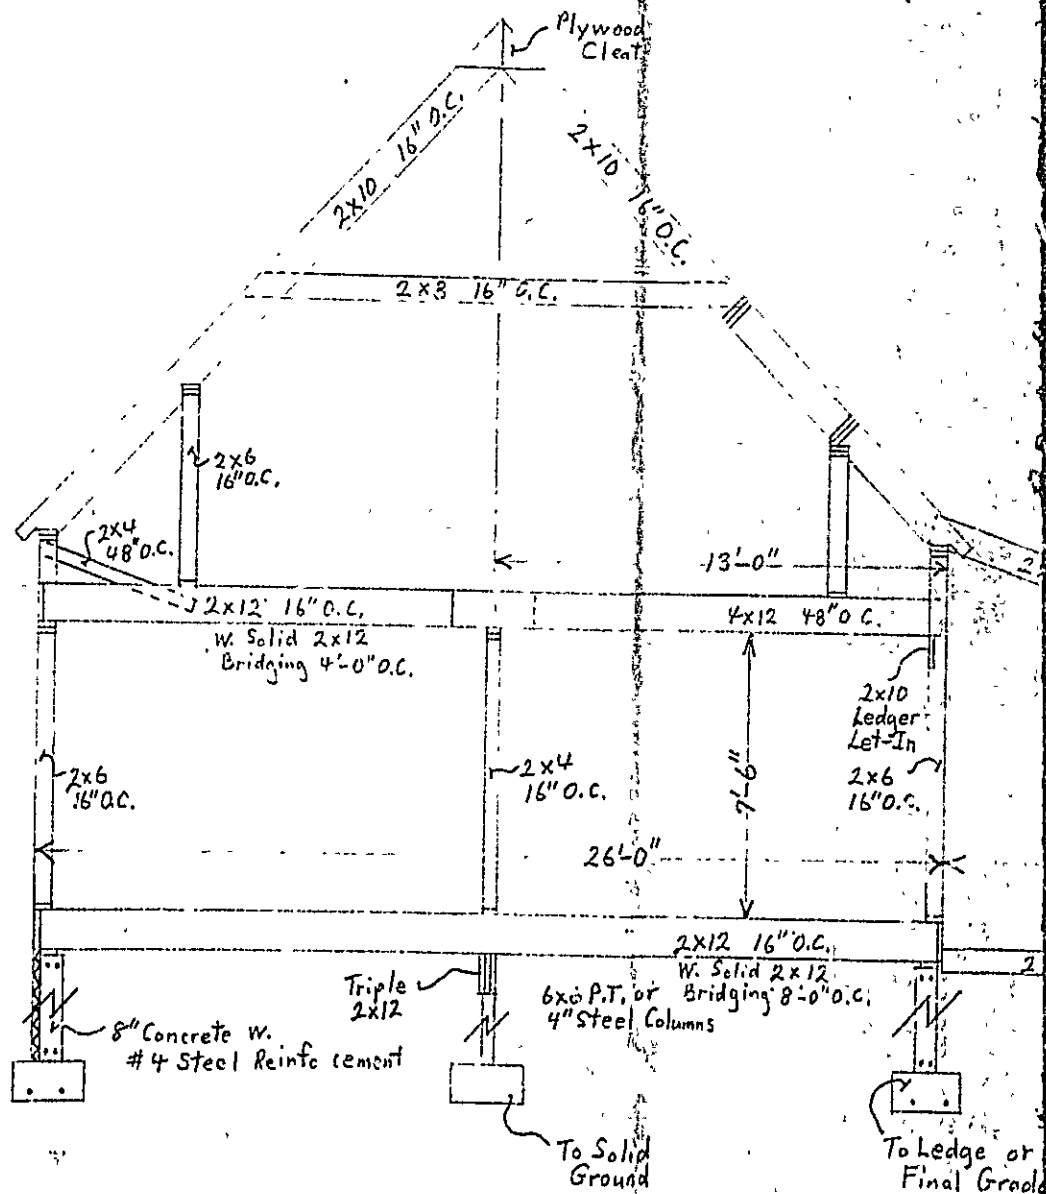 Plywood
Cleat
2x10 16" O.C.
2x10 16" O.C.
2x8 16" O.C.
2x6
16" O.C.
2x4
48" O.C.
13'-0"
2x12 16" O.C.
W. Solid 2x12
Bridging 4'-0" O.C.
4x12 48" O.C.
2x10
Ledger
Let-In
2x6
16" O.C.
2x4
16" O.C.
7'-6"
2x6
16" O.C.
26'-0"
2x12 16" O.C.
W. Solid 2x12
Bridging 8'-0" O.C.
2
2
Triple
2x12
6x6 P.T. or
4" Steel Columns
8" Concrete W.
#4 Steel Reinfo cement
To Solid
Ground
To Ledge or
Final Grade